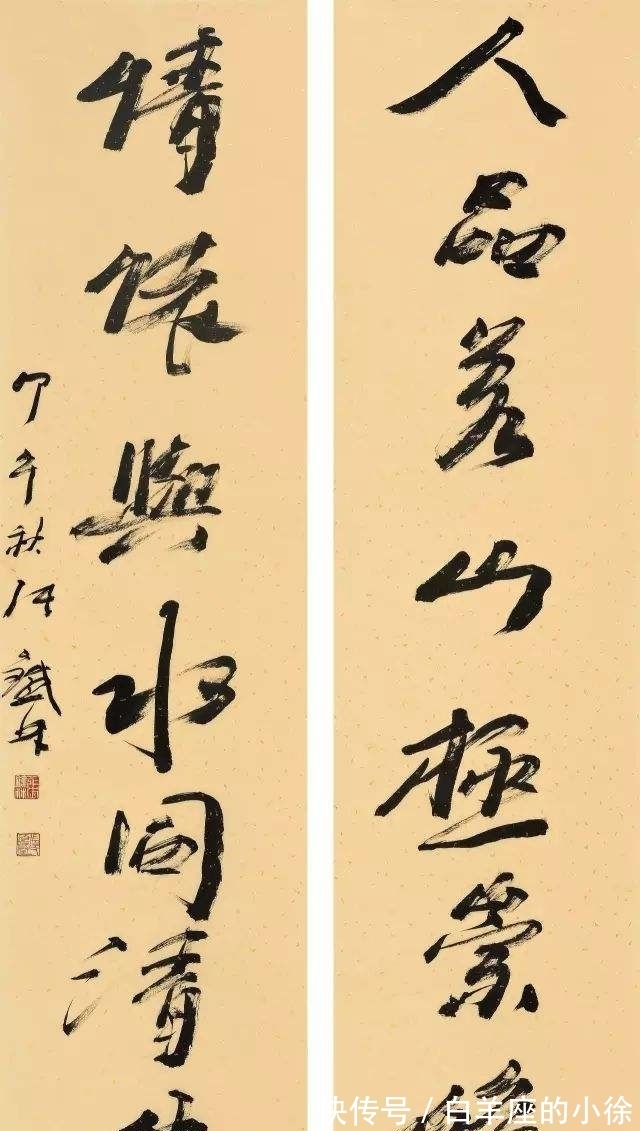 人品若山極崇
情懷與水同清
甲午秋
快传号 / 白羊座的小徐